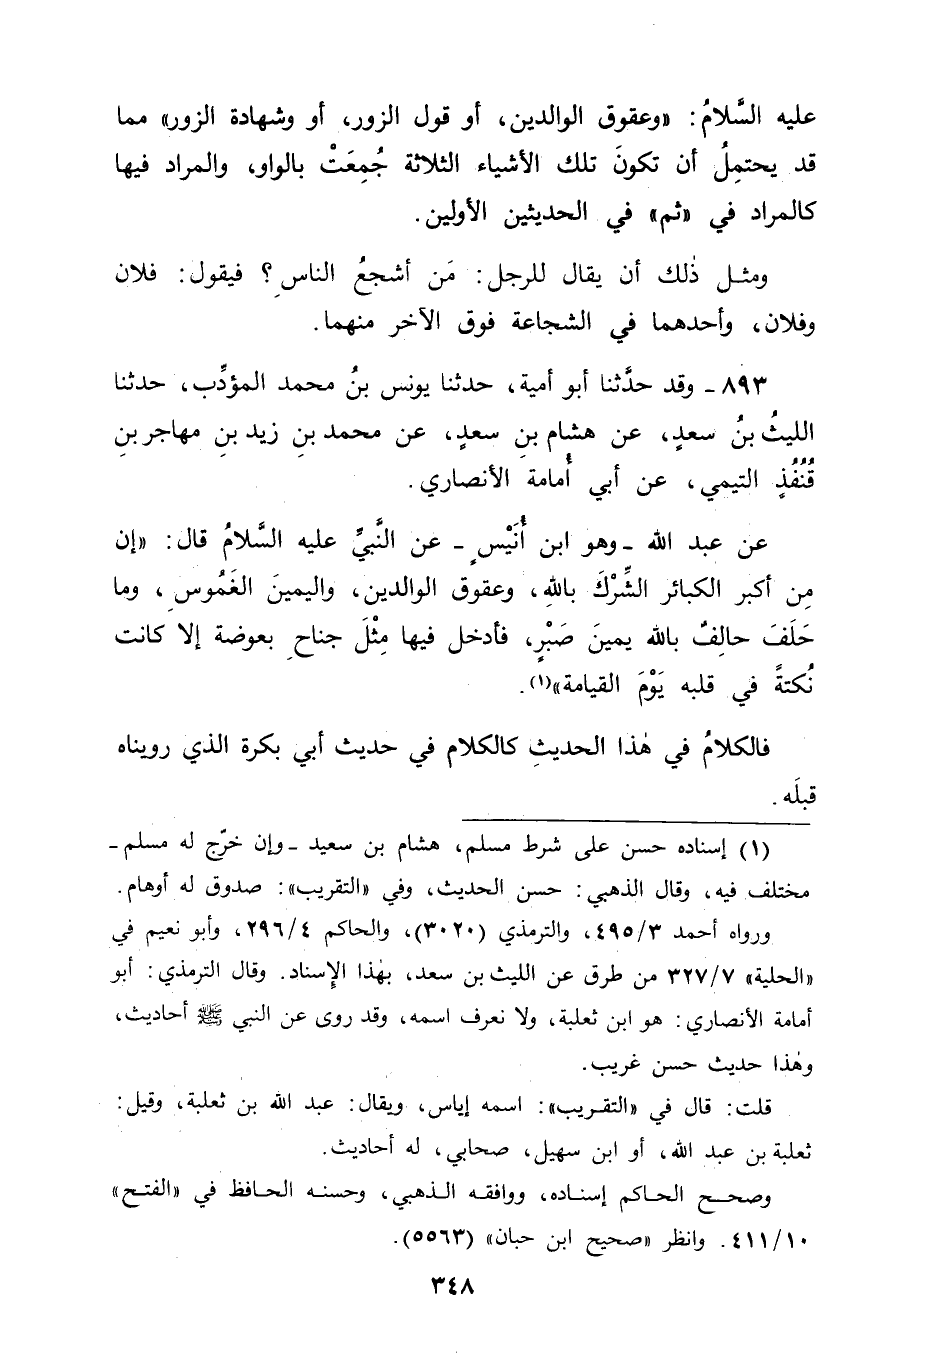 عليه السَّلامُ: «وعقوق الوالدين، أو قول الزور، أو وشهادة الزور» مما
قد يحتمِلُ أن تكونَ تلك الأشياء الثلاثة جُمِعَتْ بالواو، والمراد فيها
كالمراد في «ثم» في الحديثين الأولين.
ومثل ذٰلك أن يقال للرجل: مَن أشجعُ الناسِ؟ فيقول: فلان
وفلان، وأحدهما في الشجاعة فوق الآخر منهما.
٨٩٣ ـ وقد حدَّثنا أبو أمية، حدثنا يونس بنُ محمد المؤدِّب، حدثنا
الليثُ بنُ سعدٍ، عن هشام بنِ سعدٍ، عن محمد بنِ زيد بنِ مهاجر بنِ
قُنْفُذٍ التيمي، عن أبي أُمامة الأنصاري.
عن عبد الله ـ وهو ابن أُنَيْسٍ ـ عن النَّبيِّ عليه السَّلامُ قال: «إن
مِن أكبر الكبائر الشِّرْكَ باللهِ، وعقوق الوالدين، واليمينَ الغَمُوسِ، وما
حَلَفَ حالِفٌ بالله يمينَ صَبْرٍ، فأدخل فيها مِثْلَ جناحِ بعوضة إلا كانت
نُكتةً في قلبه يَوْمَ القيامة»(١).
فالكلامُ في هٰذا الحديثِ كالكلام في حديث أبي بكرة الذي رويناه
قبلَه.
(١) إسناده حسن على شرط مسلم، هشام بن سعيد ـ وإن خرّج له مسلم ـ
مختلف فيه، وقال الذهبي: حسن الحديث، وفي «التقريب»: صدوق له أوهام.
ورواه أحمد ٤٩٥/٣، والترمذي (٣٠٢٠)، والحاكم ٢٩٦/٤، وأبو نعيم في
«الحلية» ٣٢٧/٧ من طرق عن الليث بن سعد، بهٰذا الإسناد. وقال الترمذي: أبو
أمامة الأنصاري: هو ابن ثعلبة، ولا نعرف اسمه، وقد روى عن النبي ﷺ أحاديث،
وهٰذا حديث حسن غريب.
قلت: قال في «التقريب»: اسمه إياس، ويقال: عبد الله بن ثعلبة، وقيل:
ثعلبة بن عبد الله، أو ابن سهيل، صحابي، له أحاديث.
وصحح الحاكم إسناده، ووافقه الذهبي، وحسنه الحافظ في «الفتح»
٤١١/١٠. وانظر «صحيح ابن حبان» (٥٥٦٣).
٣٤٨